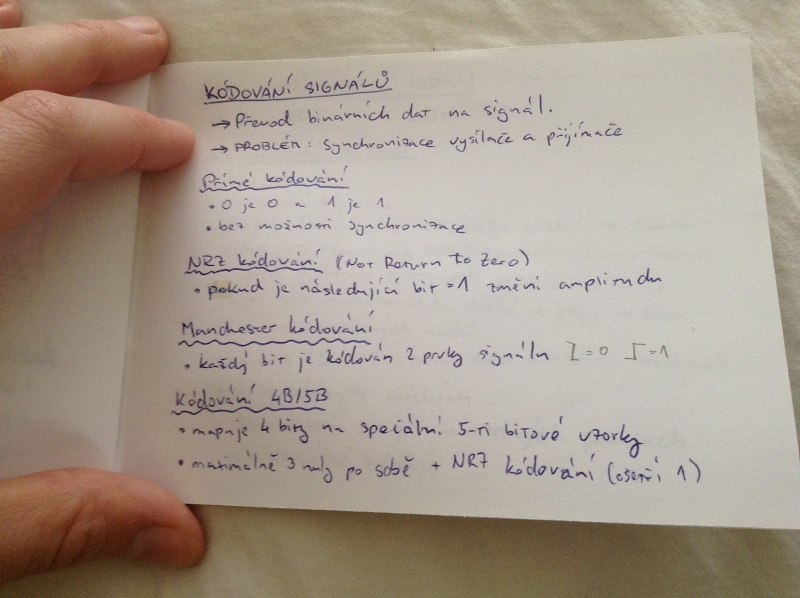 KÓDOVÁNÍ SIGNÁLŮ
→ Převod binárních dat na signál.
→ PROBLÉM: Synchronizace vysílače a přijímače
Přímé kódování
• 0 je 0 a 1 je 1
• bez možnosti synchronizace
NRZ kódování (Not Return To Zero)
• pokud je následující bit = 1 změní amplitudu
Manchester kódování
• každý bit je kódován 2 prvky signálu = 0 = 1
Kódování 4B/5B
• mapuje 4 bity na speciální 5-ti bitové vzorky
• maximálně 3 nuly po sobě + NRZ kódování (ošetří 1)